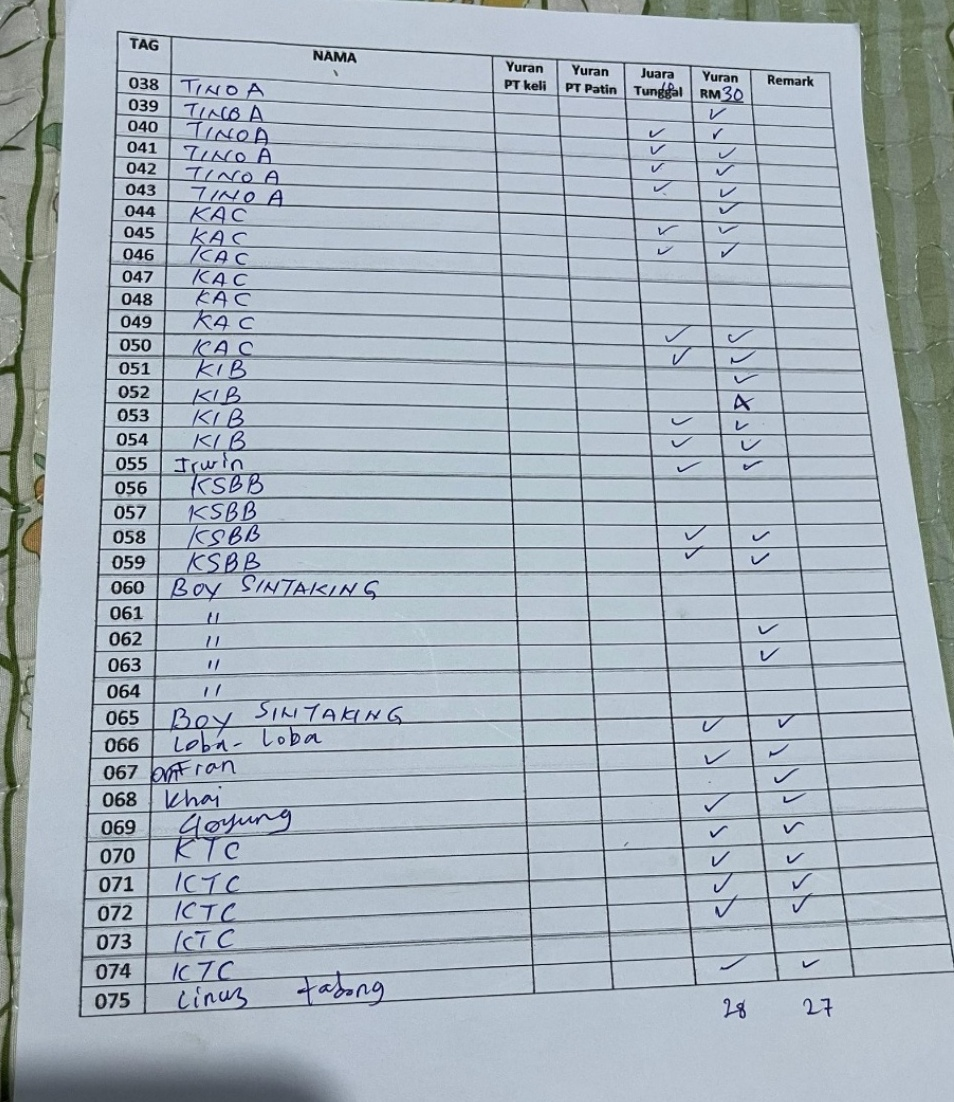 TAG NAMA Yuran PT keli Yuran PT Patin Juara Tunggal Yuran RM30 Remark
038 TINO A
039 TINO A
040 TINO A
041 TINO A
042 TINO A
043 TINO A
044 KAC
045 KAC
046 KAC
047 KAC
048 KAC
049 KAC
050 KAC
051 KIB
052 KIB
053 KIB
054 KIB
055 Irwin
056 KSBB
057 KSBB
058 KSBB
059 KSBB
060 BOY SINTAKING
061 "
062 "
063 "
064 "
065 BOY SINTAKING
066 Loba-Loba
067 Fran
068 Khai
069 Goyung
070 KTC
071 KTC
072 KTC
073 KTC
074 KTC
075 Linus tabong
28 27